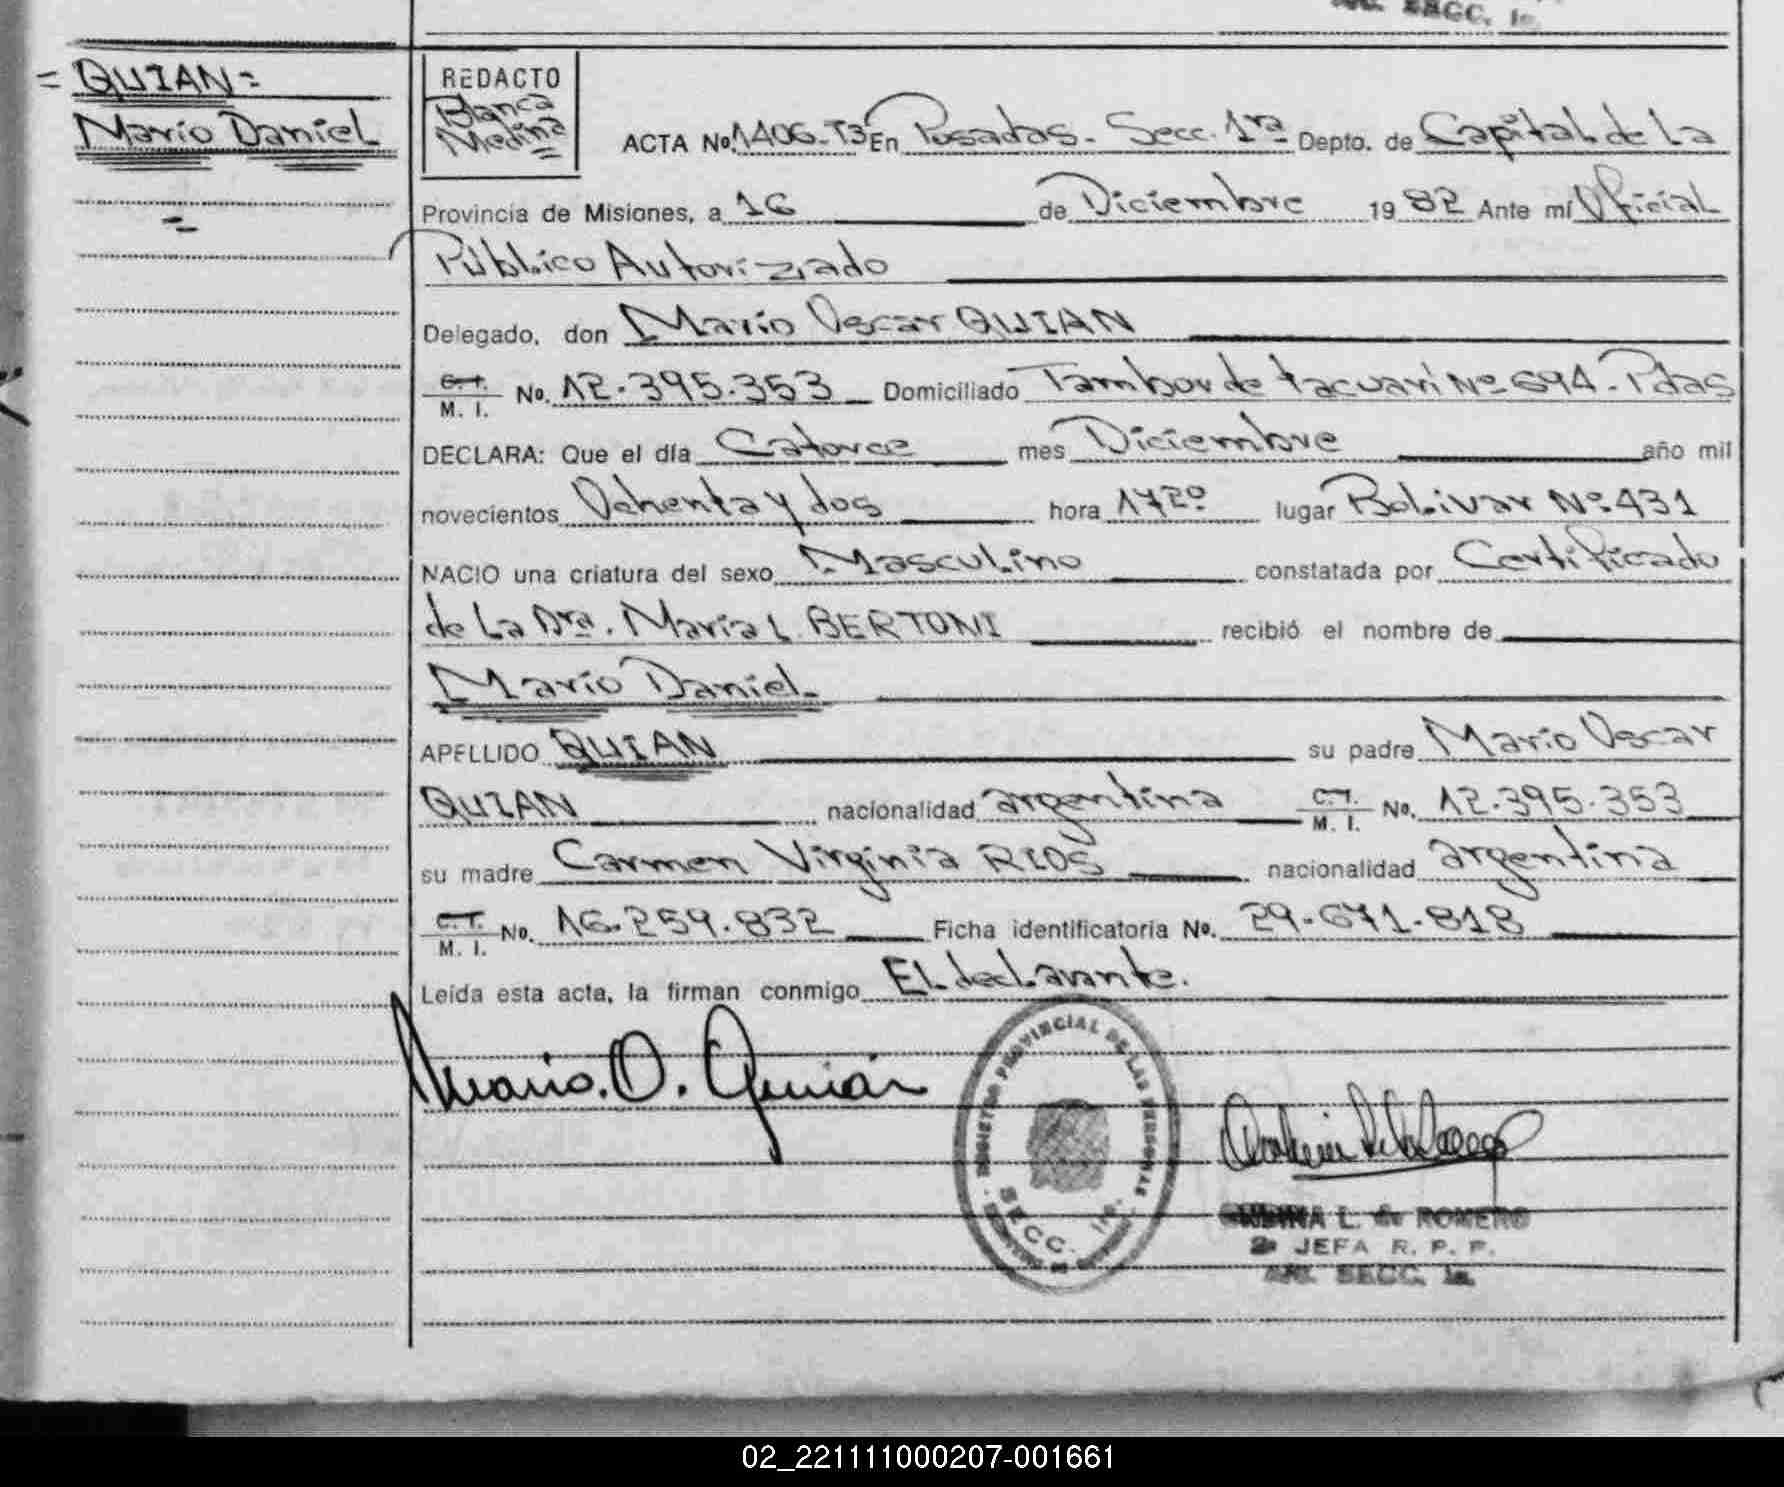 SECC. 1a.
= QUIAN =
Mario Daniel
REDACTO
Blanca
Medina
ACTA No. 1406-T3 En Posadas - Secc. 1ra Depto. de Capital de La
Provincia de Misiones, a 16 de Diciembre 1982 Ante mí Oficial
Público Autorizado
Delegado, don Mario Oscar QUIAN
C.I. M. I. No. 12.395.353 Domiciliado Tambor de tacuarí Nº 694 - Pdas
DECLARA: Que el día Catorce mes Diciembre año mil
novecientos Ochenta y dos hora 17²⁰ lugar Bolivar Nº 431
NACIO una criatura del sexo Masculino constatada por Certificado
de La Dra. María L. BERTONI recibió el nombre de
Mario Daniel
APELLIDO QUIAN su padre Mario Oscar
QUIAN nacionalidad argentina C.I. M. I. No. 12.395.353
su madre Carmen Virginia RIOS nacionalidad argentina
C.I. M. I. No. 16.259.832 Ficha identificatoria No. 29-671-818
Leída esta acta, la firman conmigo El declarante.
Mario. O. Quián
REGISTRO PROVINCIAL DE LAS PERSONAS
SECC. 1ra.
L. de ROMERO
JEFA R. P. P.
SECC. 1a.
02_221111000207-001661